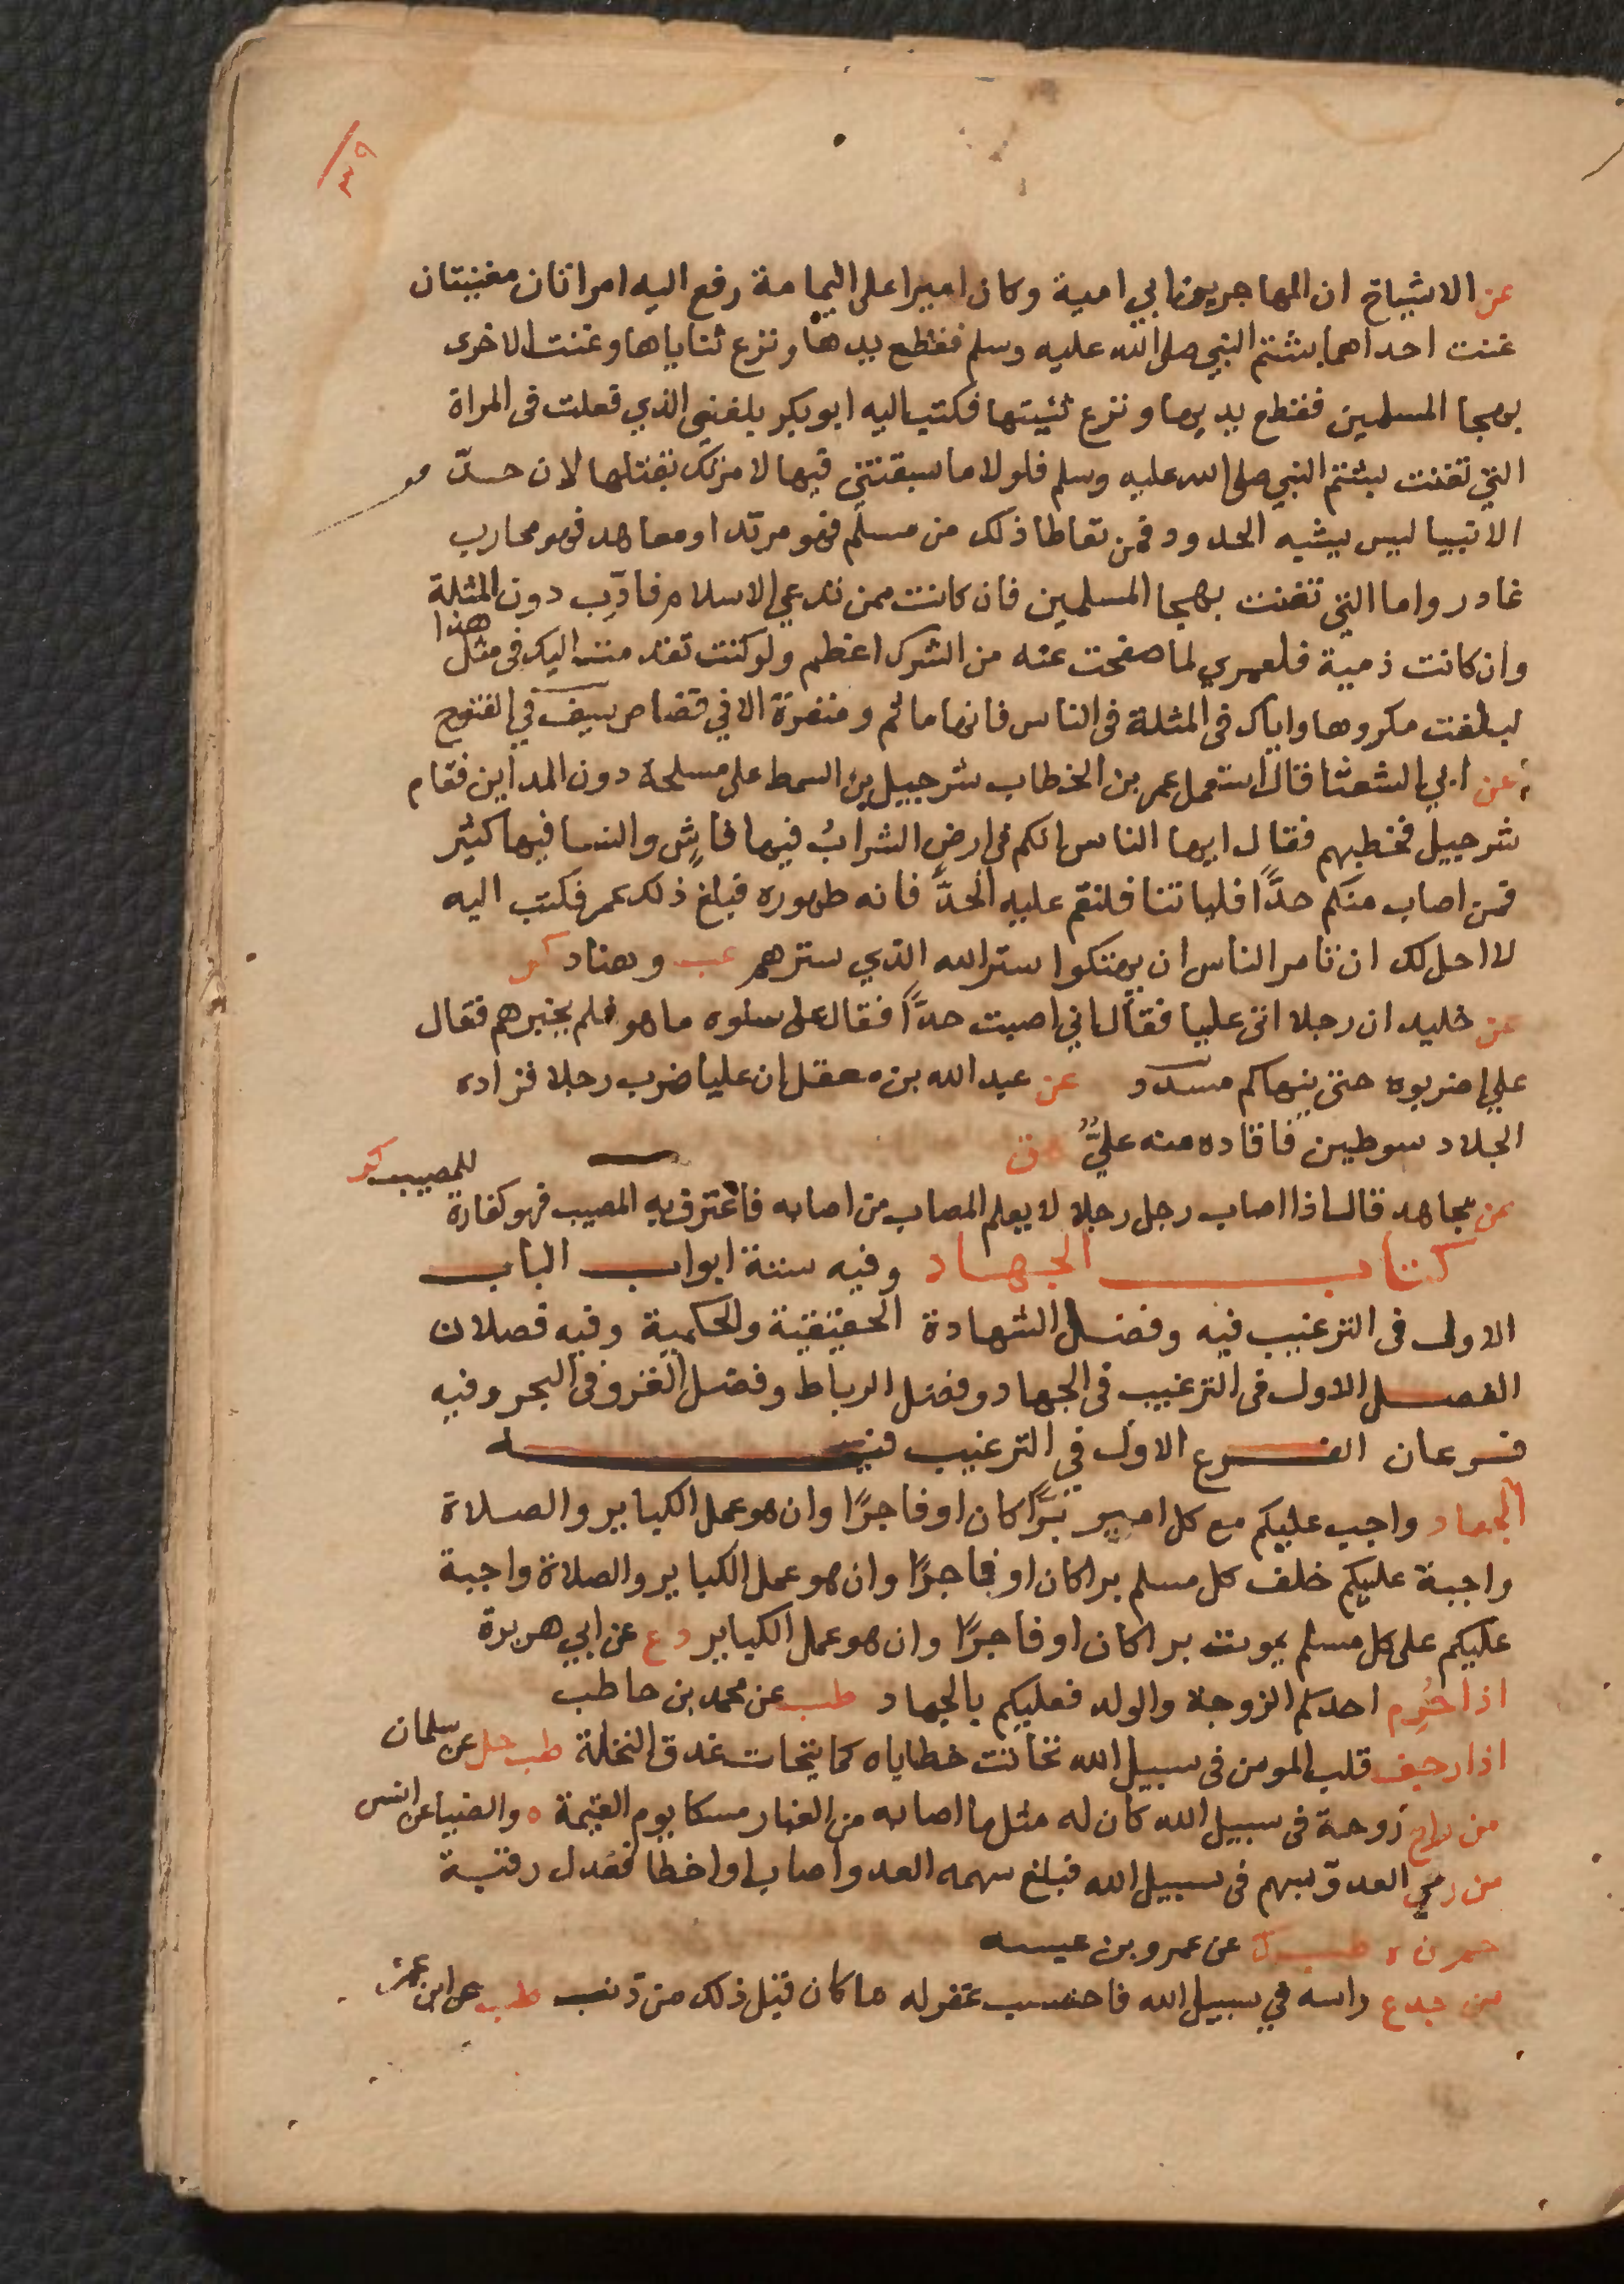 ٣٩
عن الاشياخ ان المهاجر بن ابي امية وكان اميرا على اليمامة رفع اليه امراتان مغنيتان
غنت احداهما بشتم النبي صلى الله عليه وسلم فقطع يدها ونزع ثناياها وغنت الاخرى
بهجا المسلمين فقطع يديها ونزع ثنيتها فكتب اليه ابو بكر بلغني الذي فعلت في المراة
التي تغنت بشتم النبي صلى الله عليه وسلم فلولا ما سبقتني فيها لامرتك بقتلها لان حد
الانبيا ليس يشبه الحدود فمن تعاطا ذلك من مسلم فهو مرتد او معاهد فهو محارب
غادر واما التي تغنت بهجا المسلمين فان كانت ممن تدعي الاسلام فادب دون المثلة
وان كانت ذمية فلعمري لما صفحت عنه من الشرك اعظم ولو كنت تقدمت اليك في مثل هذا
لبلغت مكروها واياك في المثلة في الناس فانها ماثم ومنفرة الا في قصاص سيف في الفتوح
عن ابي الشعثا قال استعمل عمر بن الخطاب شرحبيل بن السمط على مسلحة دون المداين فقام
شرحبيل فخطبهم فقال ايها الناس انكم في ارض الشرابُ فيها فاشٍ والنسا فيها كثير
فمن اصاب منكم حدًّا فلياتنا فلنقم عليه الحدَّ فانه طهوره فبلغ ذلك عمر فكتب اليه
لا احل لك ان تامر الناس ان يهتكوا ستر الله الذي سترهم عب وهناد كر
عن خليد ان رجلا اتى عليا فقال اني اصبت حدًّا فقال على سلوه ما هو فلم يخبرهم فقال
علي اضربوه حتى ينهاكم مسدد عن عبد الله بن معقل ان عليا ضرب رجلا فزاده
الجلاد سوطين فاقاده منه عليٌّ ق
عن مجاهد قال اذا اصاب رجل رجلا لا يعلم المصاب من اصابه فاعترف به المصيب فهو كفارة للمصيب كر
كتاب الجهاد وفيه ستة ابواب الباب
الاول في الترغيب فيه وفضل الشهادة الحقيقية والحكمية وفيه فصلان
الفصل الاول في الترغيب في الجهاد وفضل الرباط وفضل الغزو في البحر وفيه
فرعان الفرع الاول في الترغيب فيه
الجهاد واجب عليكم مع كل امير برًّا كان او فاجرًا وان هو عمل الكباير والصلاة
واجبة عليكم خلف كل مسلم برا كان او فاجرًا وان هو عمل الكباير والصلاة واجبة
عليكم على كل مسلم يموت برا كان او فاجرًا وان هو عمل الكباير د ع عن ابي هريرة
اذا حُرِم احدكم الزوجة والولد فعليكم بالجهاد طب عن محمد بن حاطب
اذا رجف قلب المومن في سبيل الله تحاتت خطاياه كما يتحات عذق النخلة طب حل عن سلمان
من راح روحة في سبيل الله كان له مثل ما اصابه من الغبار مسكا يوم القيمة ه والضيا عن انس
من رمى العدوّ بسهم في سبيل الله فبلغ سهمه العدو اصاب او اخطا فعدل رقبة
حم ن ه طب ك عن عمرو بن عبسه
من صدع راسه في سبيل الله فاحتسب غفر له ما كان قبل ذلك من ذنب طب عن ابن عمر